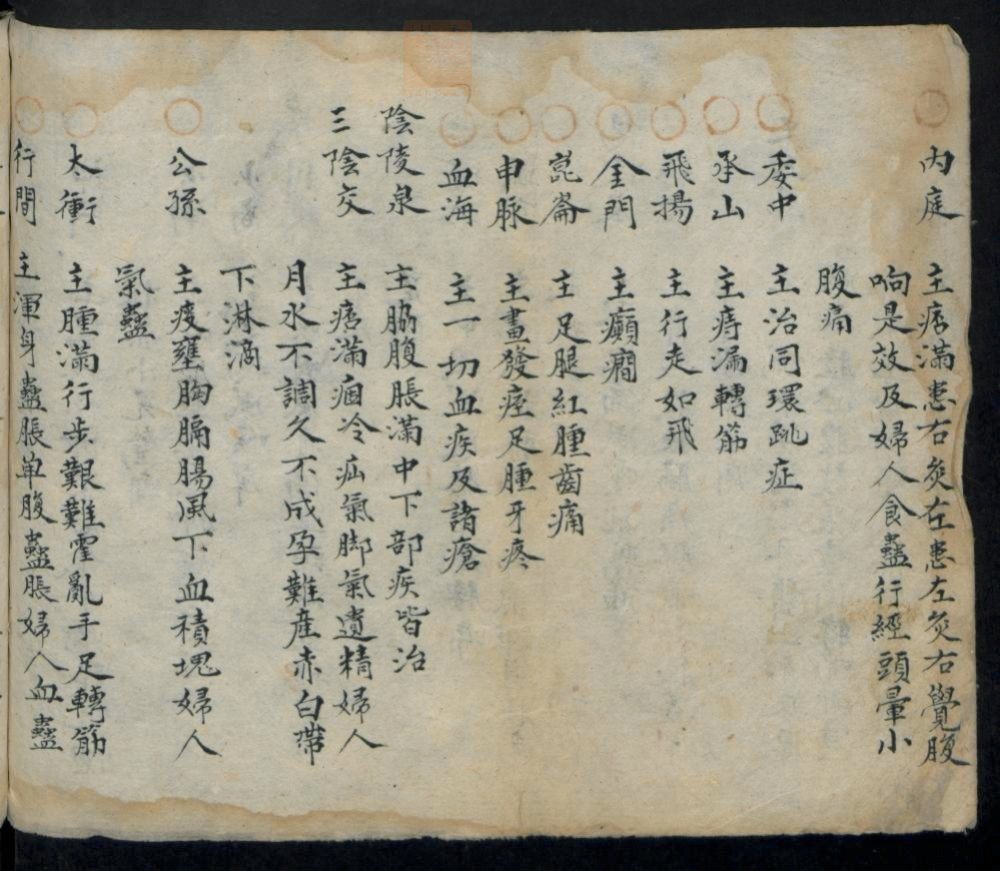 內庭 主痞滿患右灸左患左灸右覺腹
响是效及婦人食蠱行經頭暈小
腹痛
委中 主治同環跳症
承山 主痔漏轉筋
飛揚 主行走如飛
金門 主癲癇
崑崙 主足腿紅腫齒痛
申脉 主晝發痓足腫牙疼
血海 主一切血疾及諸瘡
陰陵泉 主脇腹脹滿中下部疾皆治
三陰交 主痞滿痼冷疝氣脚氣遺精婦人
月水不調久不成孕難産赤白帶
下淋滴
公孫 主痰壅胸膈腸風下血積塊婦人
氣蠱
太衝 主腫滿行步艱難霍亂手足轉筋
行間 主渾身蠱脹单腹蠱脹婦人血蠱